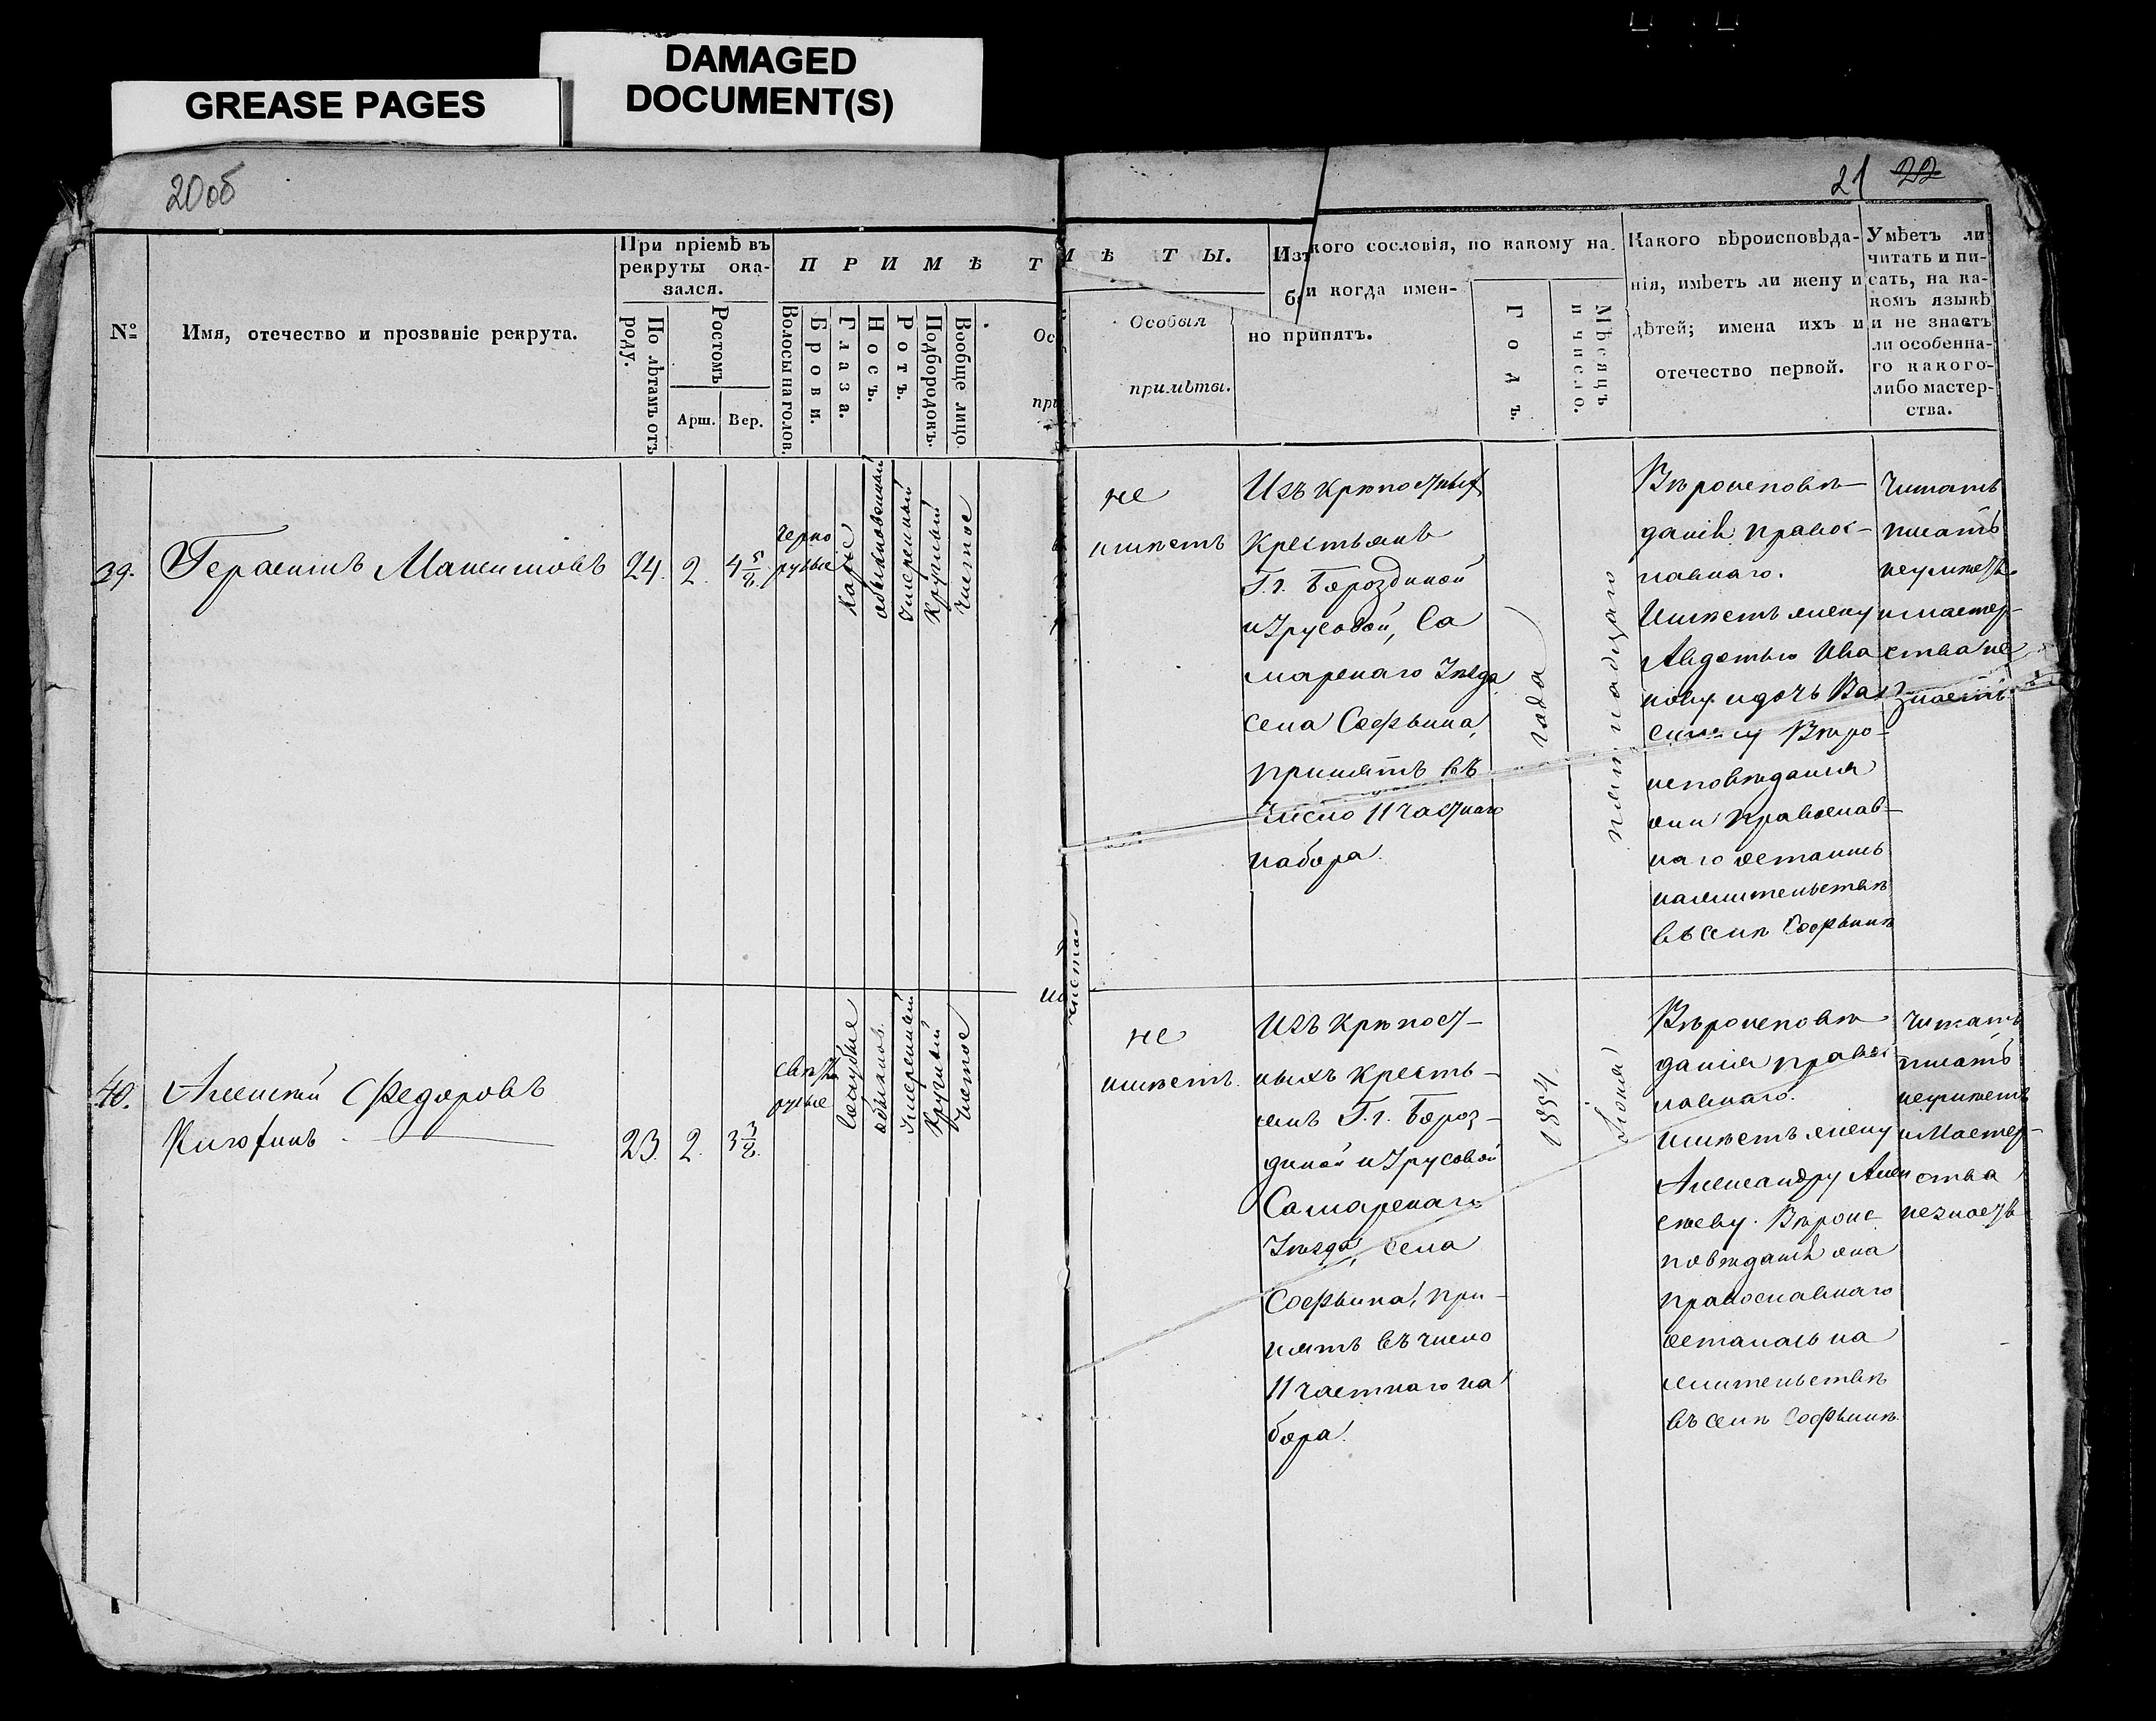 DAMAGED
DOCUMENT(S)
GREASE PAGES
20об
21 22
№
Имя, отечество и прозваніе рекрута.
При пріемѣ въ
рекруты ока-
зался.
По лѣтамъ отъ
роду.
Ростомъ
Арш.
Вер.
П Р И М Ѣ Т
Волосы на голов.
Брови.
Глаза.
Носъ.
Ротъ.
Подбородокъ.
Вообще лицо
Ос
при
Ѣ Т Ы.
Особыя
примѣты.
Изъ
кого сословія, по какому на-
и когда имен-
но принятъ.
Годъ.
Мѣсяцъ
и число.
Какого вѣроисповѣда-
нія, имѣетъ ли жену и
дѣтей; имена ихъ и
отечество первой.
Умѣетъ ли
читать и пи-
сать, на ка-
комъ языкѣ
и не знаетъ
ли особенна-
го какого-
либо мастер-
ства.
39.
Герасимъ Максимовъ
24.
2.
4 5/8
черно
русые
Каріе
обыкновенный
Умѣренный
Круглый
Чистое
не
имѣетъ
Изъ крѣпостныхъ
Крестьянъ
Г.г. Бороздиной
и Урусовой, Са
марскаго Уѣзда
села Софьина,
принятъ въ
Число 11 частнаго
набора.
Вѣроисповѣ-
данія правос-
лавнаго.
Имѣетъ жену
Авдотью Ива
нову и дочь Ва
силису Вѣро-
исповѣданія
они Православ-
наго остались
на жительствѣ
въ селѣ Софьинѣ
Читать
писать
неумѣетъ
и мастер-
ства не
знаетъ
40.
Алексѣй Федоровъ
23.
2.
3 3/8
свѣтло
русые
Сѣроголубые
обыкнов.
Умѣренный
Круглый
Чистое
не
имѣетъ.
Изъ крѣпост-
ныхъ кресть-
янъ Г.г. Бороз-
диной и Урусовой
Самарскаго
Уѣзда, села
Софьина, при-
нятъ въ число
11 частнаго на
бора.
1854.
года
Іюня
пятнадцаго
Вѣроисповѣ
данія правос
лавнаго.
имѣетъ жену
Александру Алек
сѣеву. Вѣроис
повѣданія она
православнаго
осталась на
жительствѣ
въ селѣ Софьинѣ.
Читать
писать
неумѣетъ
и Мастер-
ства
незнаетъ